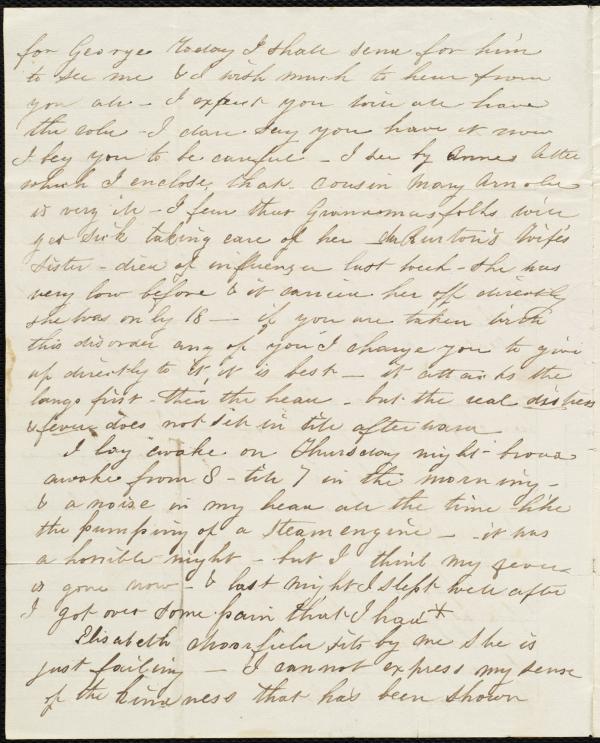 for George today I shall send for him
to see me & I wish much to hear from
you all - I expect you will all have
the cold - I dare say you have it now
I beg you to be careful - I see by Annes letter
which I enclose, that cousin Mary Arnold
is very ill - I fear that Grandmamas folks will
get sick taking care of her - Mr Burton's wife's
sister - died of influenza last week - she was
very low before & it carried her off directly
she was only 18 - if you are taken with
this disorder any of you I charge you to give
up directly to it, it is best - it attacks the
lungs first - then the head - but the real distress
& fever does not set in till afterward
I lay awake on Thursday night broad
awake from 8 - till 7 in the morning -
& a noise in my head all the time like
the pumping of a steam engine - it was
a horrible night - but I think my fever
is gone now - & last night I slept well after
I got over some pain that I had *
Elisabeth sits by me she is
just failing - I cannot express my sense
of the kindness that has been shown